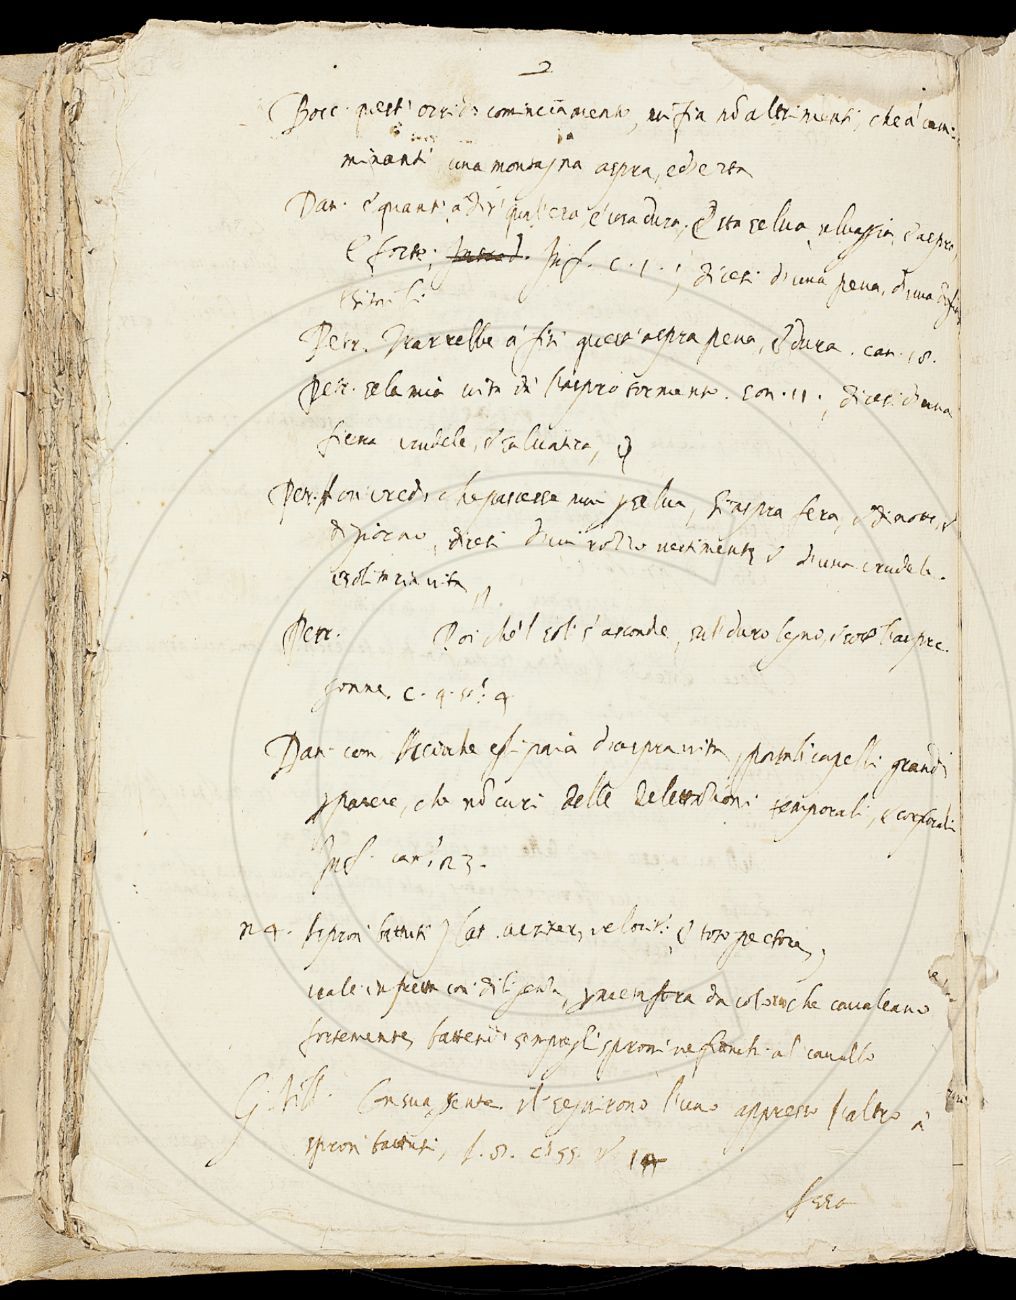 2
Bocc. quest' orrido cominciamento, vi fia nõ altrimenti, che à cam:
minanti una montagna aspra, ed erta
Dan. é quanto à dir qual' era, é cosa dura, Esta selva selvaggia, é aspra,
é forte; Inf. c. 1. ; dicesi d'una pena, d'una
Petr. Trarrebbe à fin quest' aspra pena, é dura. can. 18.
Petr. se la mia vita da l'aspro tormento. son. 11. ; dicesi d'una
fiera crudele, é salvatica,
Petr. non credo che pascesse mai p selva, sì aspra fera, ò di notte, ò
di giorno, dicesi d'un rozzo vestimento é d'una crudele
é solitaria vita
Petr. Poi che 'l sol s'asconde, sul duro legno, é sotto l'aspre
gonne. c. 4. st. 4
Dan. com. acciòche essi paia d'aspra vita, p capelli grandi
p parere, che nõ curi delle delettationi temporali, é corporali
Inf. can. 23.
n 4. spron battuti lat. velocit. é toto pectore,
vale in fretta con diligenza, p metafora da coloro che cavalcano
fortemente, battendo sempre gli sproni ne fianchi al cavallo
G. Vill. Con sua gente il seguirono l'uno appresso l'altro à
spron battuti, l. 8. c. 55.